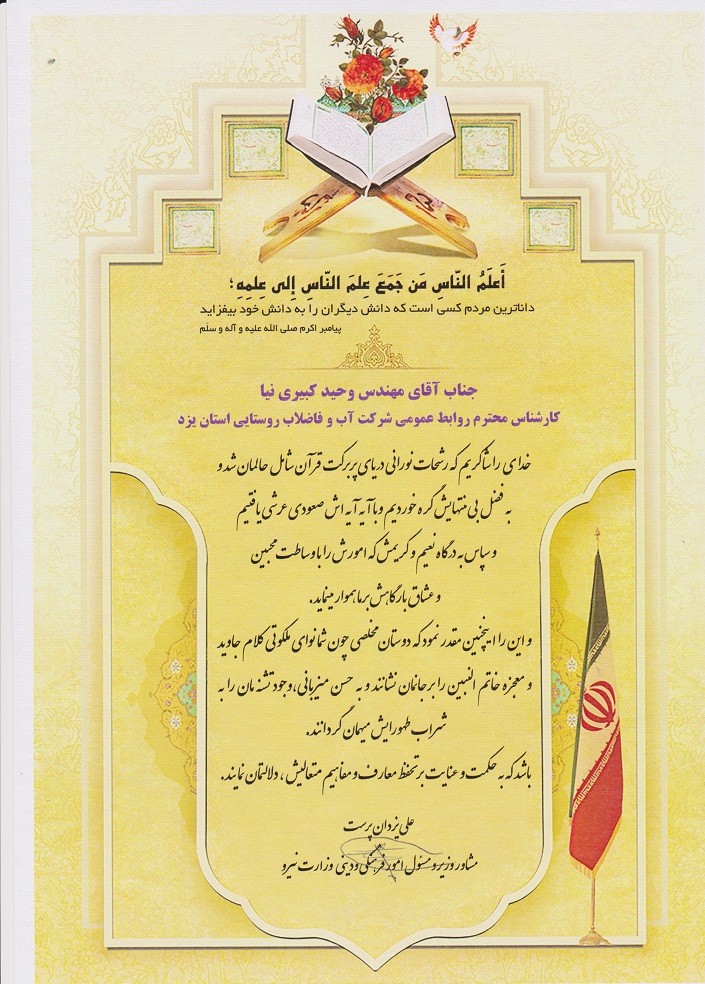 أَعلَمُ النّاسِ مَن جَمَعَ عِلمَ النّاسِ إِلی عِلمِهِ؛
داناترین مردم کسی است که دانش دیگران را به دانش خود بیفزاید
پیامبر اکرم صلی الله علیه و آله و سلم
جناب آقای مهندس وحید کبیری نیا
کارشناس محترم روابط عمومی شرکت آب و فاضلاب روستایی استان یزد
خدای را شاکریم که رشحات نورانی دریای پربرکت قرآن شامل حالمان شد و
به فضل بی منتهایش گره خوردیم و با آیه آیه اش صعودی عرشی یافتیم
و سپاس به درگاه نعیم و کریمش که امورش را با وساطت محبین
و عشاق بارگاهش بر ما هموار مینماید.
و این را اینچنین مقدر نمود که دوستان مخلصی چون شما نوای ملکوتی کلام جاوید
و معجزه خاتم النبین را بر جانمان نشانند و به حسن میزبانی، وجود تشنه مان را به
شراب طهورایش میهمان گردانند.
باشد که به حکمت و عنایت بر تحفظ معارف و مفاهیم متعالیش، دلالتمان نمایند.
علی یزدان پرست
مشاور وزیر و مسئول امور فرهنگی و دینی وزارت نیرو